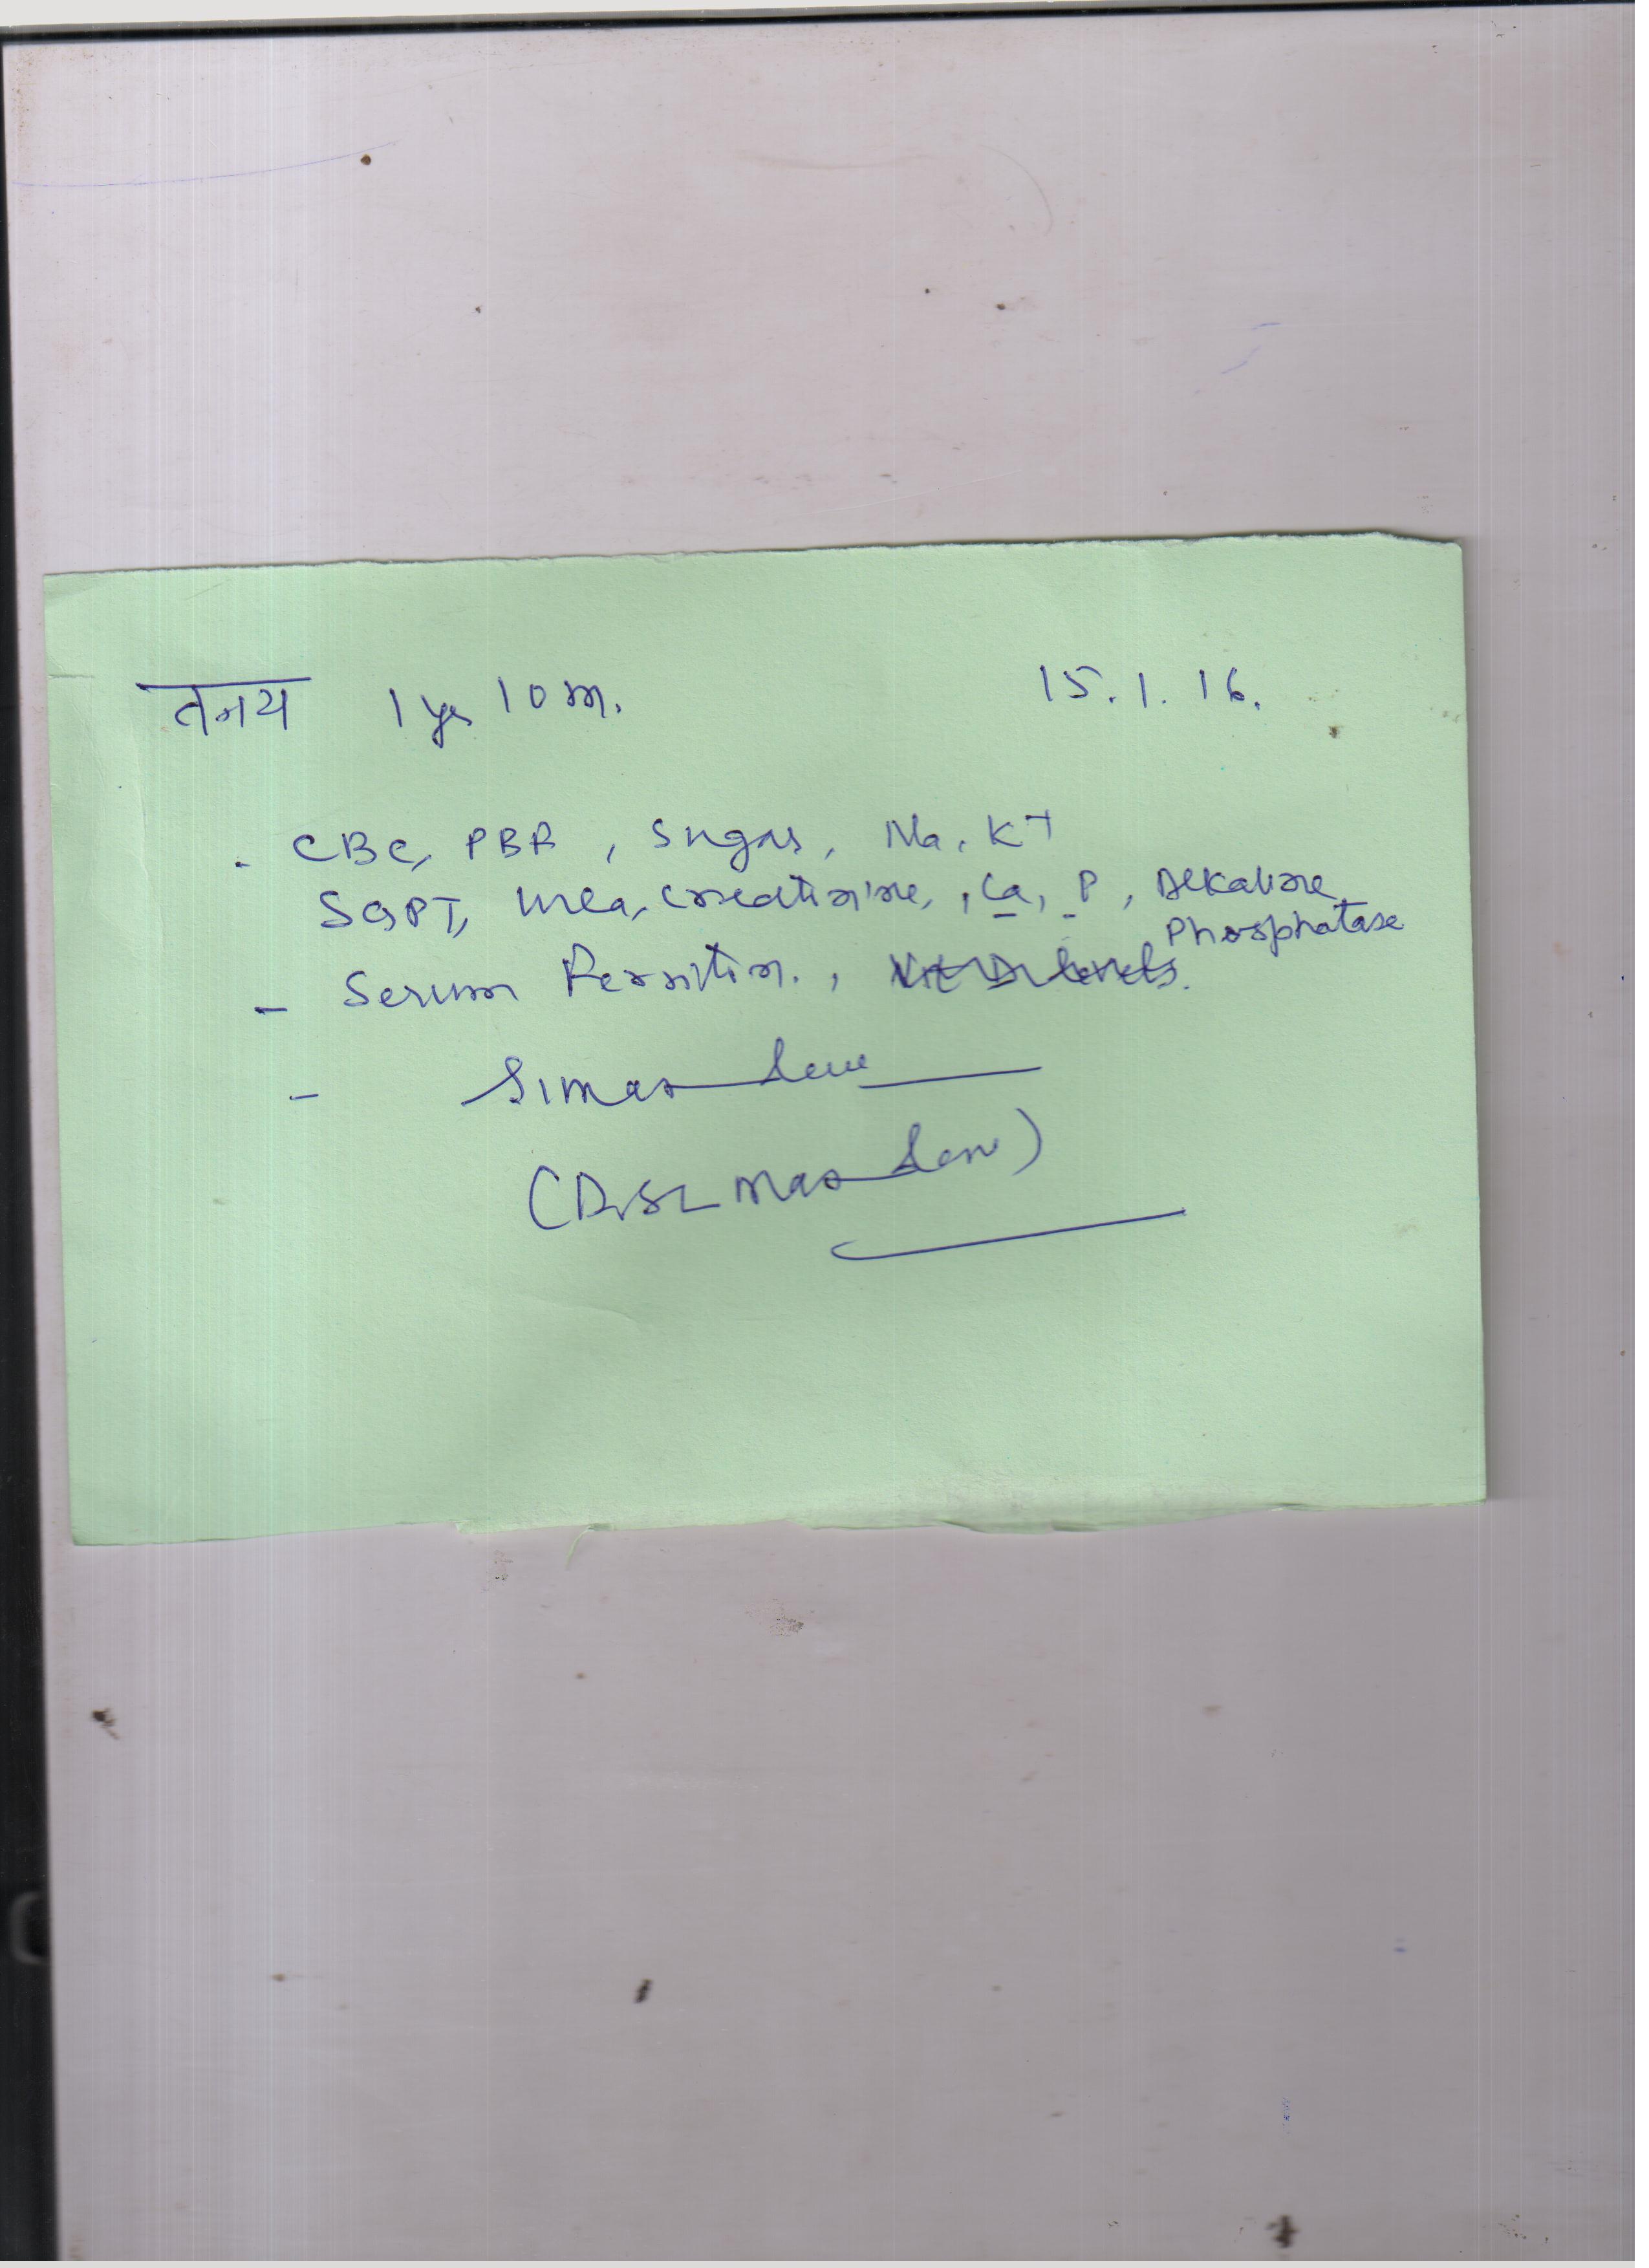 तनय 1 yr 10 m. 15.1.16.
. CBC, PBF, Sugar, Na, K+
SGPT, Urea, Creatinine, , Ca, P, Alkaline
Phosphatase
- Serum Ferritin. , Vit D levels.
- Simar
(Dr. Simar